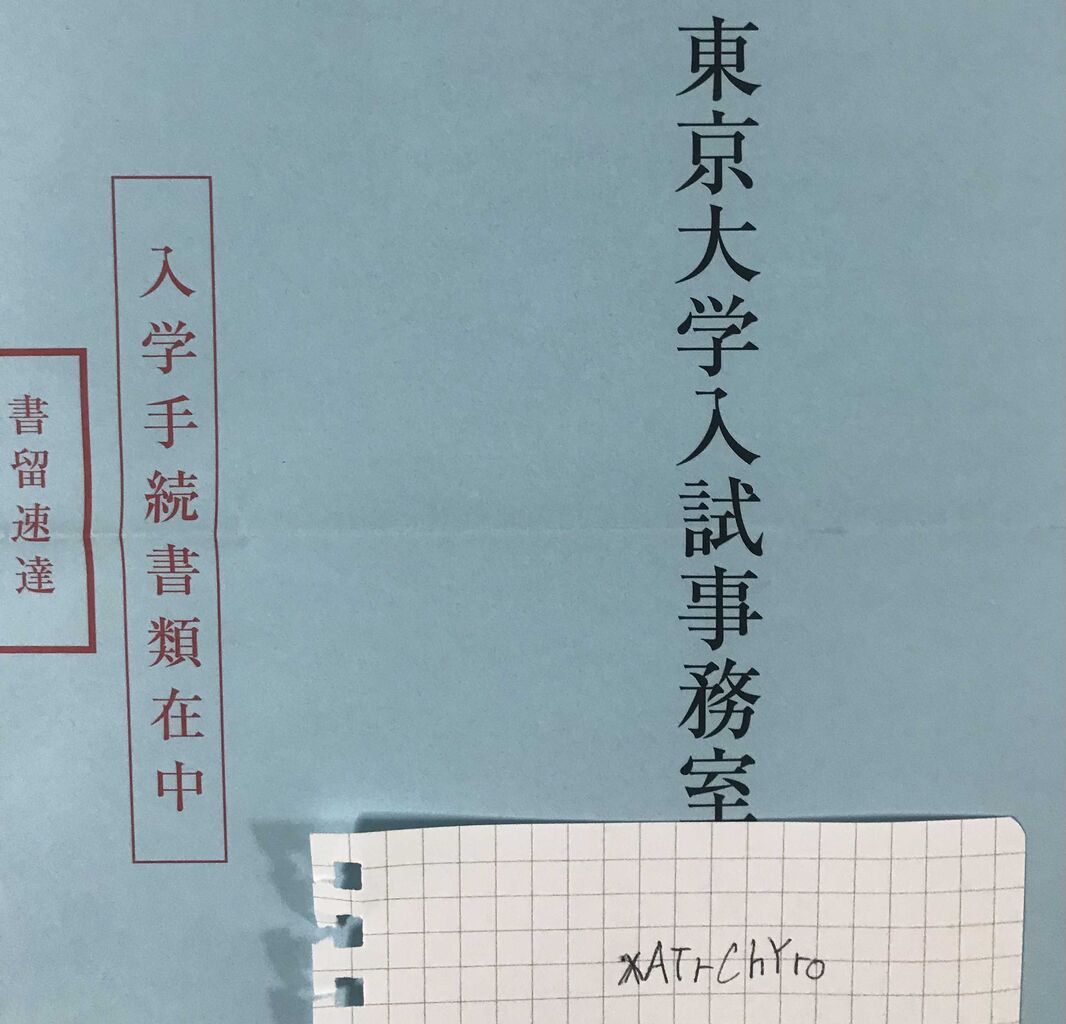 東京大学入試事務室
入学手続書類在中
書留速達
xATrChYro